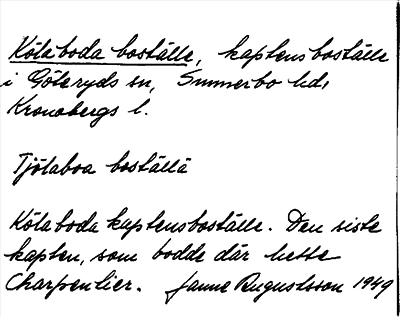 Kölaboda boställe, kaptensboställe
i Göteryds sn, Sunnerbo hd,
Kronobergs l.
Tjölaboa boställä
Kölaboda kaptensboställe. Den siste
kapten, som bodde där hette
Charpentier. Janne Augustsson 1949